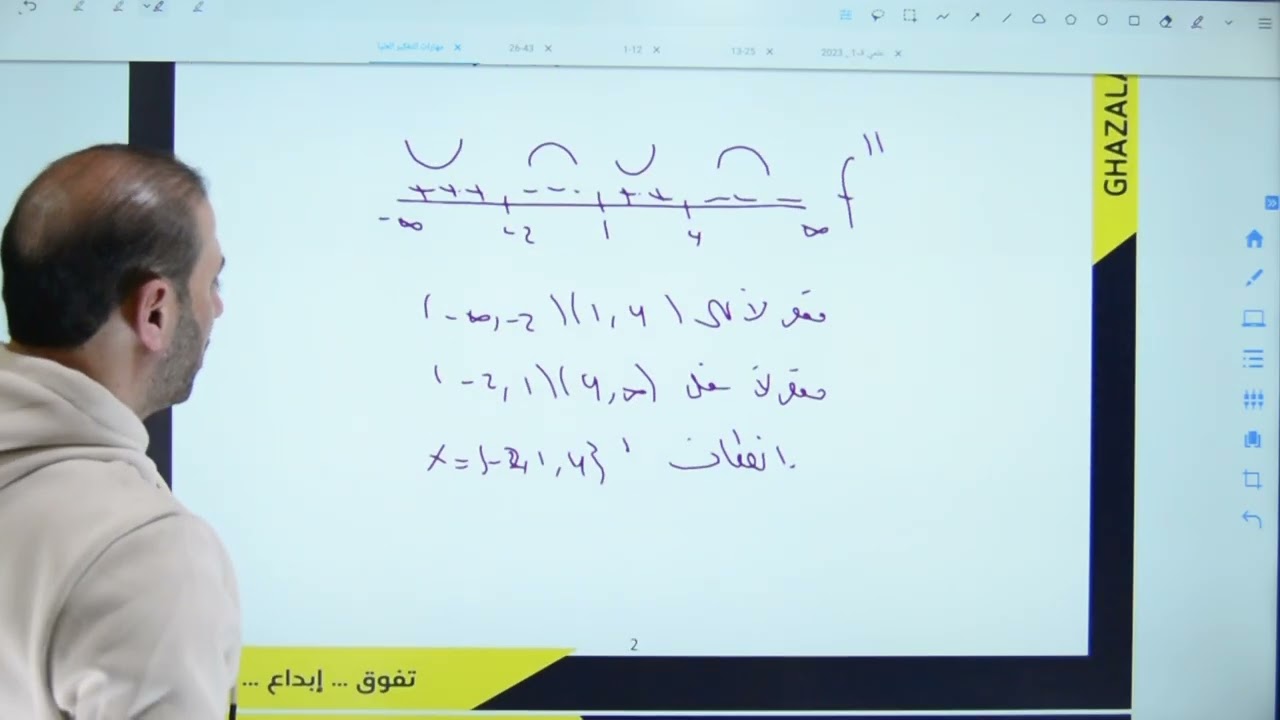 مهارات التفكير العليا × 26-43 × 1-12 × 13-25 × علمي ف1_2023 ×
GHAZALA
+++ -- - ++ -- - f''
-∞ -2 1 4 ∞
مقعر لأعلى (-∞,-2)(1,4)
مقعر لأسفل (-2,1)(4,∞)
انعطاف x={-2,1,4}
2
تفوق ... إبداع ...